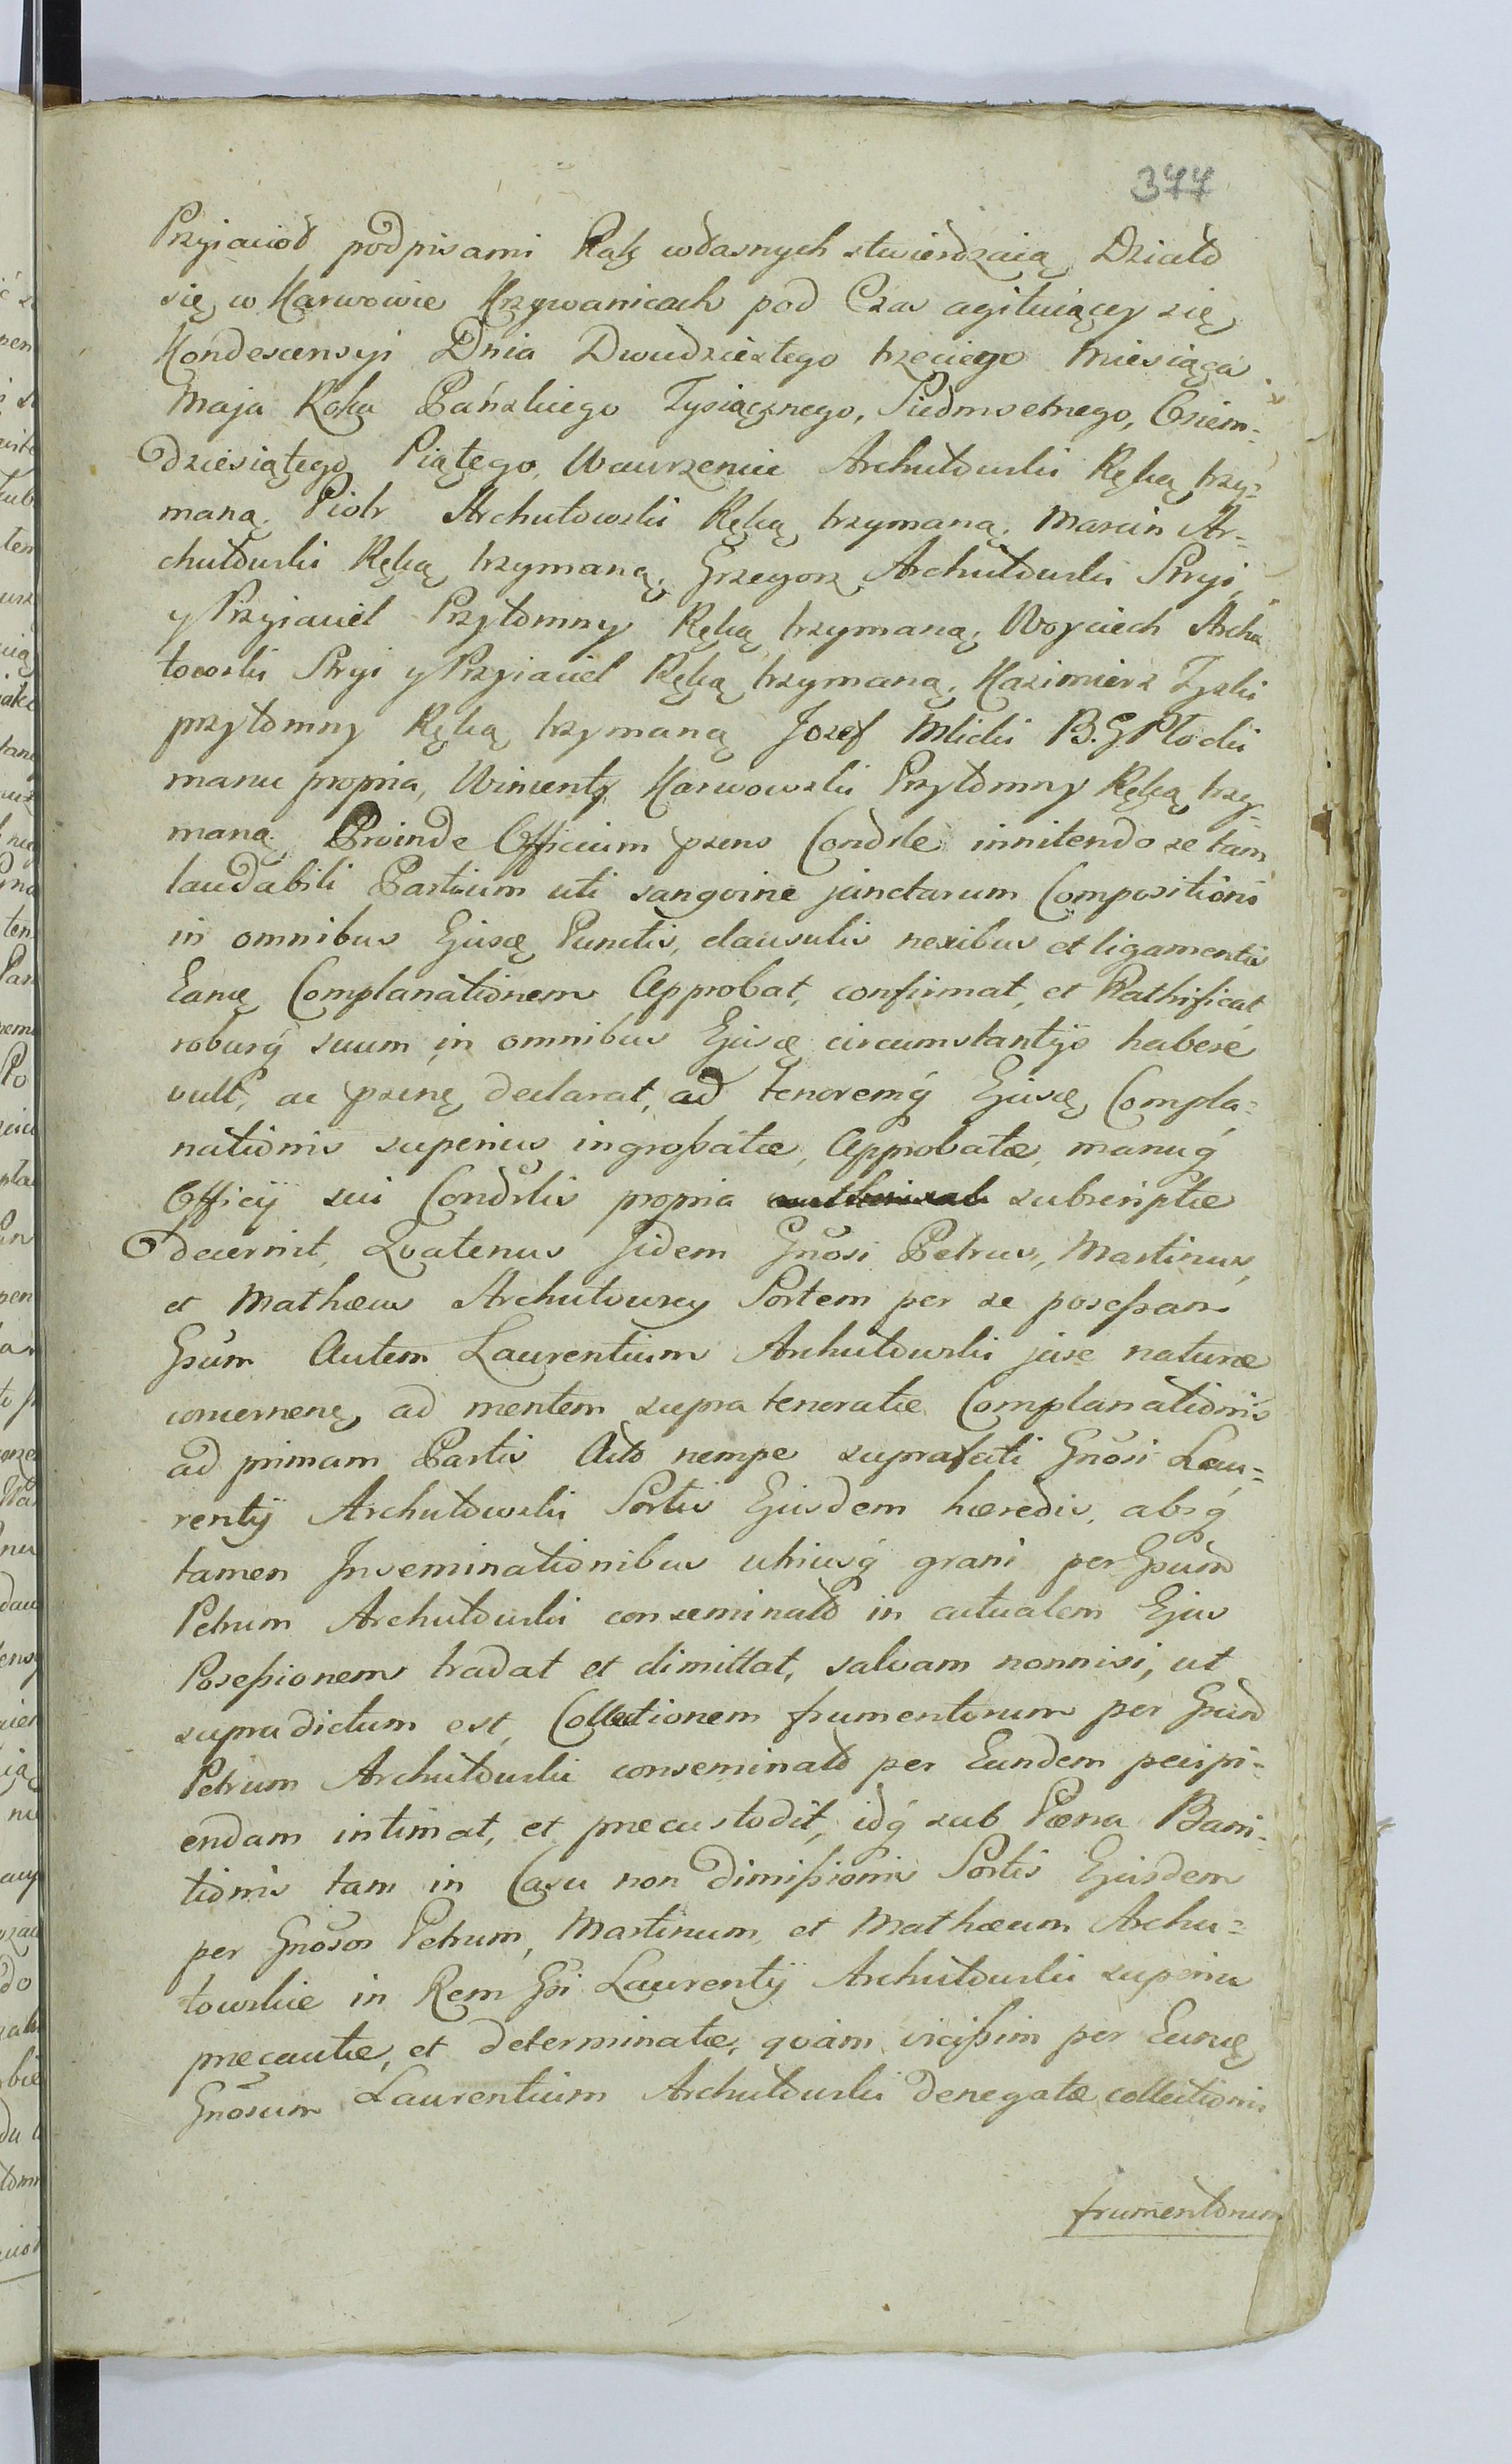 377
Przyiacioł podpisami Rąk własnych stwierdzaią Działo
się w Karwowie Krzywanicach pod Czas agituiącey się
Kondescensyi Dnia Dwudziestego trzeciego Miesiąca
Maja Roku Pańskiego Tysiącznego, Siedmsetnego, Osiem=
dziesiątego Piątego, Wawrzeniec Archutowski Ręką trzy=
maną. Piotr Archutowski Ręką trzymaną. Marcin Ar=
chutowski Ręką trzymaną. Grzegorz Archutowski Stryi
y Przyiaciel Przytomny Ręką trzymaną, Woyciech Archu
towski Stryi y Przyiaciel Ręką trzymaną. Kazimierz Zyski
przytomny Ręką trzymaną Jozef Mlicki B. G Płocki
manu propria, Wincenty Karwowski Przytomny Ręką trzy=
maną. Proinde Officium prens Condsle innitendo se tam
laudabili Partium uti sangvine junctarum Compositioni
in omnibus Ejusę Punctis, clausulis nexibus et ligamentis
Eamę Complanationem Approbat, confirmat, et Rathificat
roburq́ suum in omnibus Ejusę circumstantijs habere
vult, ac prznę declarat, ad tenoremq́ Ejusę Compla=
nationis superius ingrossatæ, Approbatæ, manuq́
Officij sui Condslis propria subscriptæ
decernit, Qvatenus Jidem Gnosi Petrus, Martinus,
et Mathæus Archutowscy Sortem per se possessam
Gsum Autem Laurentium Archutowski jure naturæ
concernenę, ad mentem supra tenoratæ Complanationis
ad primam Partis Acto nempe suprafati Gnosi Lau=
rentij Archutowski Sortis Ejusdem hæredis, absq́
tamen Inseminationibus utriusq́ grani per Gsum
Petrum Archutowski conseminato in actualem Ejus
Possessionem tradat et dimittat, salvam nonnisi, ut
supradictum est, Collectionem frumentorum per Gsum
Petrum Archutowski conseminato per Eundem percipi=
endam intimat, et præcustodit, idq́ sub Pæna Bani=
tionis tam in Casu non Dimissionis Sortis Ejusdem
per Gnosos Petrum, Martinum, et Mathæum Archu=
towskie in Rem Gsi Laurentij Archutowski superius
præcautæ, et determinatæ, qvàm vicissim per Eunę
Gnosum Laurentium Archutowski denegatæ collectionis
frumentorum